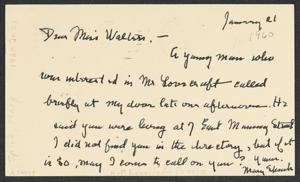 January 21
1960
Dear Miss Walters, -
A young man who
was interested in Mr Lovecraft called
briefly at my door late one afternoon. He
said you were living at 7 East Manning Street
I did not find you in the directory, but if it
is so, may I come to call on you?
Mary